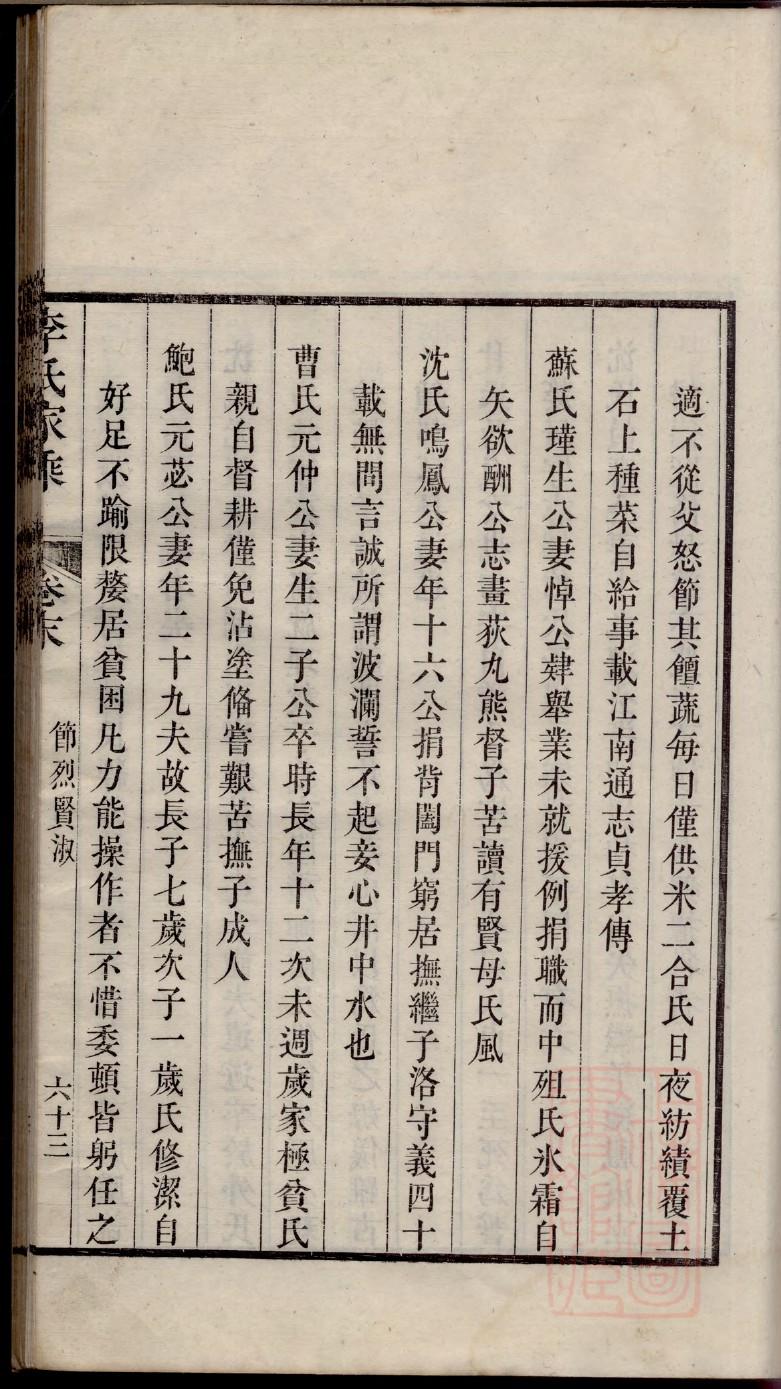 適不從父怒節其饘蔬每日僅供米二合氏日夜紡績覆土
石上種菜自給事載江南通志貞孝傳
蘇氏瑾生公妻悼公肄舉業未就援例捐職而中殂氏氷霜自
矢欲酬公志畫荻丸熊督子苦讀有賢母氏風
沈氏鳴鳳公妻年十六公捐背闔門窮居撫繼子洛守義四十
載無問言誠所謂波瀾誓不起妾心井中水也
曹氏元仲公妻生二子公卒時長年十二次未週歲家極貧氏
親自督耕僅免沾塗偹嘗艱苦撫子成人
鮑氏元苾公妻年二十九夫故長子七歲次子一歲氏修潔自
好足不踰限嫠居貧困凡力能操作者不惜委頓皆躬任之
李氏家乘 卷末 節烈賢淑 六十三